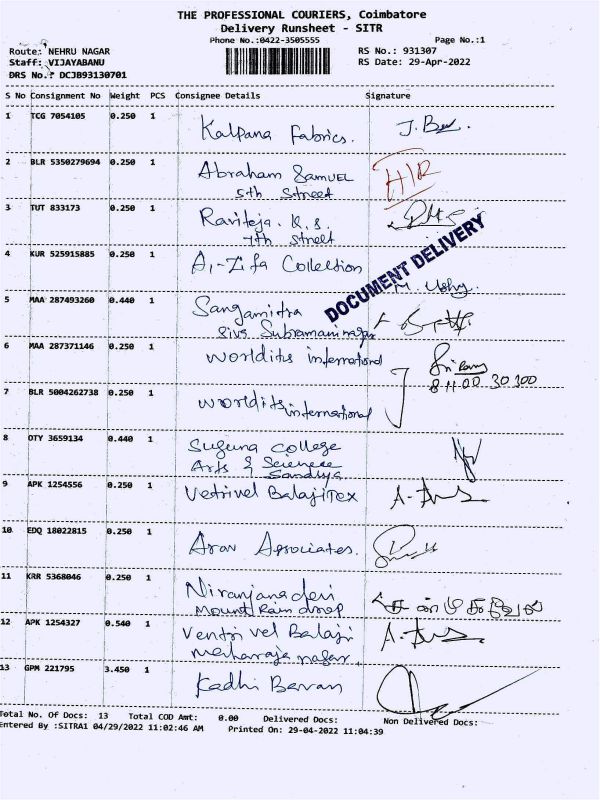 THE PROFESSIONAL COURIERS, Coimbatore
Delivery Runsheet - SITR
Phone No.:0422-3505555 Page No.:1
Route: NEHRU NAGAR RS No.: 931307
Staff: VIJAYABANU RS Date: 29-Apr-2022
DRS No.: DCJB93130701
S No Consignment No Weight PCS Consignee Details Signature
1 TCG 7054105 0.250 1 Kalpana Fabrics.
2 BLR 5350279694 0.250 1 Abraham Samuel
5th Street
3 TUT 833173 0.250 1 Raviteja. K.S.
7th Street
4 KUR 525915885 0.250 1 A,-Zifa Collection
DOCUMENT DELIVERY
5 MAA 287493260 0.440 1 Sangamitra
6 MAA 287371146 0.250 1 Worldits international
7 BLR 5004262738 0.250 1 Worldits international
8 OTY 3659134 0.440 1 Suguna College
Arts & Science
Sandhya
9 APK 1254556 0.250 1 Vetrivel BalajiTex
10. EDQ 18022815 0.250 1 Arav Associates.
11 KRR 5368046 0.250 1 Niranjana devi
Mount Rain drop
12 APK 1254327 0.540 1 Ventri vel Balaji
Maharaja nagar.
13 GPM 221795 3.450 1 Kadhi Bavan
Total No. Of Docs: 13 Total COD Amt: 0.00 Delivered Docs: Non Delivered Docs:
Entered By :SITRA1 04/29/2022 11:02:46 AM Printed On: 29-04-2022 11:04:39